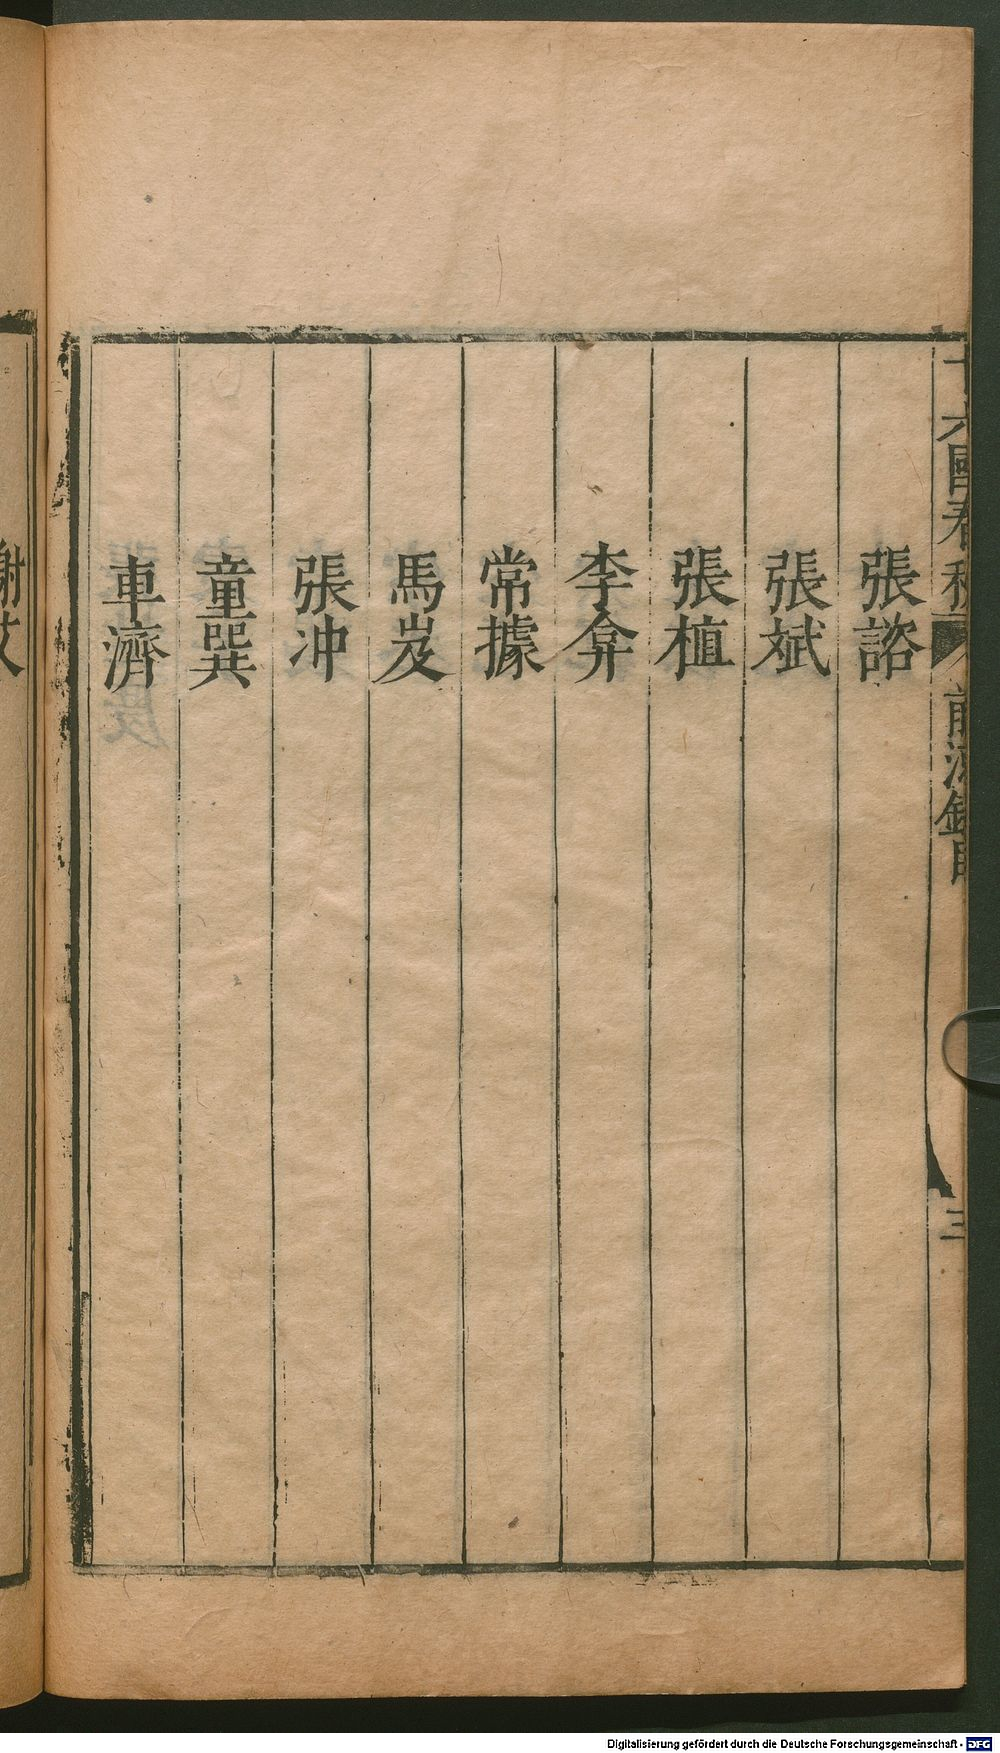 十六國春秋
前涼錄目
三
張諮
張斌
張植
李弇
常據
馬岌
張冲
童巽
車濟
謝艾
Digitalisierung gefördert durch die Deutsche Forschungsgemeinschaft - DFG